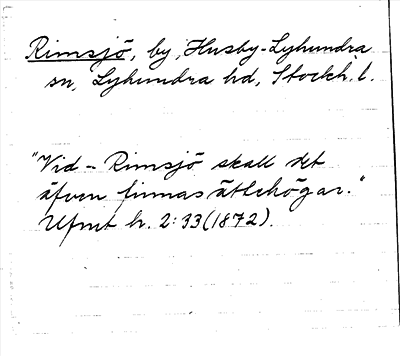 Rimsjö, by, Husby-Lyhundra
sn, Lyhundra hd, Stockh. l.
"Vid - Rimsjö skall det
äfven finnas ättehögar."
Ufmt h. 2:33 (1872).